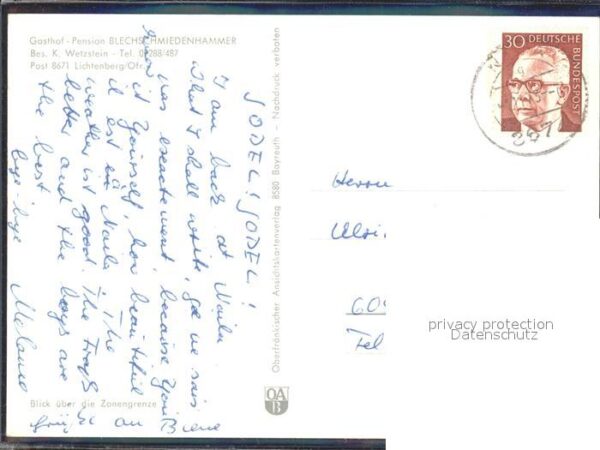 Gasthof - Pension BLECHSCHMIEDENHAMMER
Bes. K. Wetzstein - Tel. 09288/487
Post 8671 Lichtenberg/Ofr.
JODEL! JODEL!
I am back at Naila
What I shall write,
was exactement, because you
it yourself, how beautiful
it est in Naila. The
weather is good. The
better and the boys are
the best
bye-bye
Blick über die Zonengrenze
Oberfränkischer Ansichtskartenverlag 8580 Bayreuth - Nachdruck verboten
OA
B
30 DEUTSCHE BUNDESPOST
867
Herrn
Ulri
60
Fel
privacy protection
Datenschutz